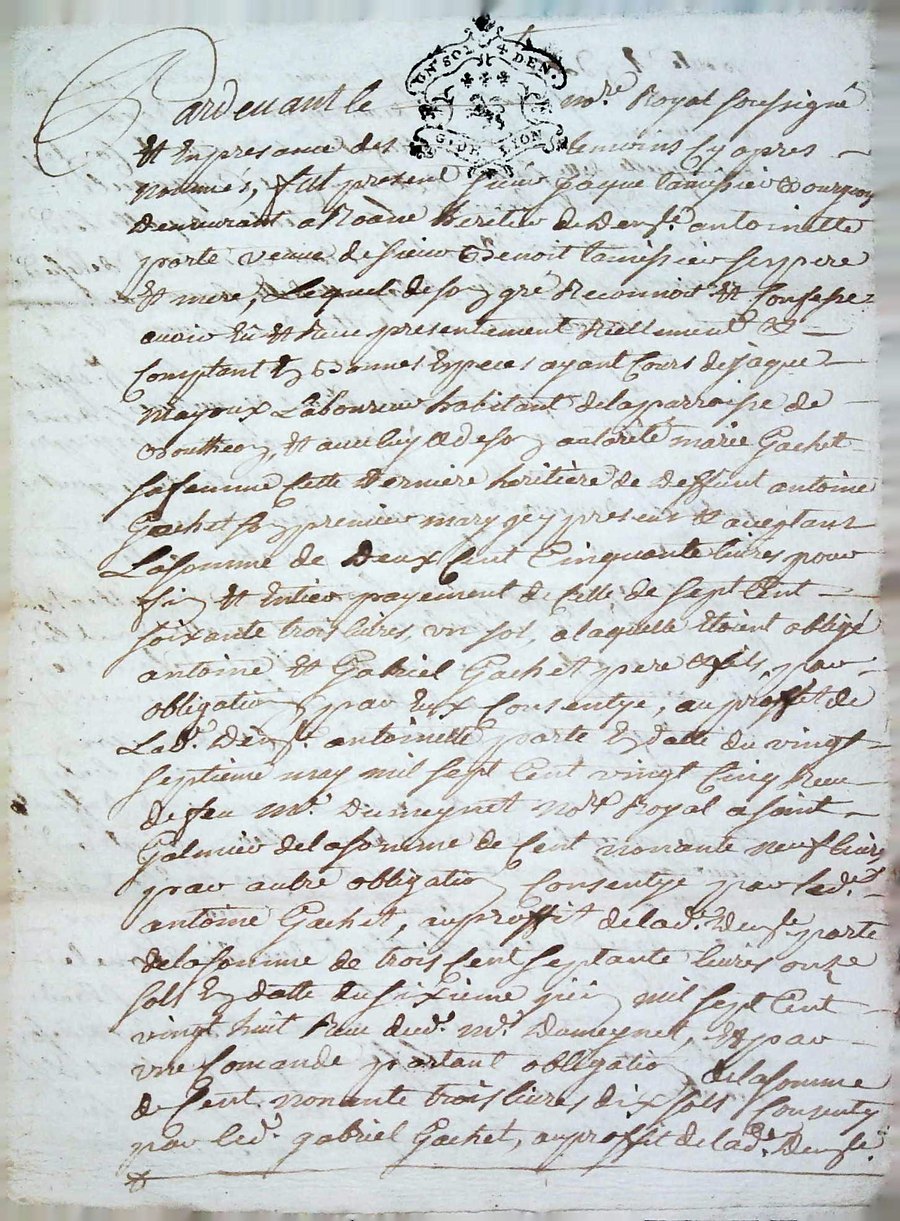 UN SOL 4 DEN.
G. DE LYON
Pardevant le no.re Royal soussigné
Et En presance des temoins Cy apres
nommés, fut present sieur Jaque tamisier Bourgeois
Demeurant a Roane heretier de Dems.le antoinette
parte veuve de sieur Benoit tamissier ses pere
Et mere, Lequel de son gré Reconnoit Et Confesse
avoir Eu Et Reçu presentement Reellement &
Comptant En Bonnes Especes ayant Cours de jaque
mayoux Laboureur habitant de la parroisse de
Boutheon, Et avec luy & de son autorité marie Gachet
sa femme Cette Derniere heritiere de Deffunt antoine
Gachet son premier mary icy present Et aceptant
La somme de Deux Cent Cinquante livres pour
fin Et Entier payement de Celle de sept Cent
soixante trois livres un sol, a laquelle Etoient obligé
antoine Et Gabriel Gachet pere & fils, par
obligation par Eux Consentye, au proffit de
La d.e Dems.le antoinette parte En datte du vingt
septieme may mil sept Cent vingt Cinq Reçu
de feu m.e Dameynet no.re Royal a saint
Galmier de la somme de Cent nonante neuf livres
par autre obligation Consentye par led.t
antoine Gachet, au proffit de lad.e Dems.le parte
de la somme de trois Cent septante livres onze
sols En datte du sixieme juin mil sept Cent
vingt huit Reçu dud.t m.e Dameynet, Et par
une Comande portant obligation de la somme
de Cent nonante trois livres dix sols Consenty
par led.t gabriel Gachet, au proffit de lad.e Dems.le